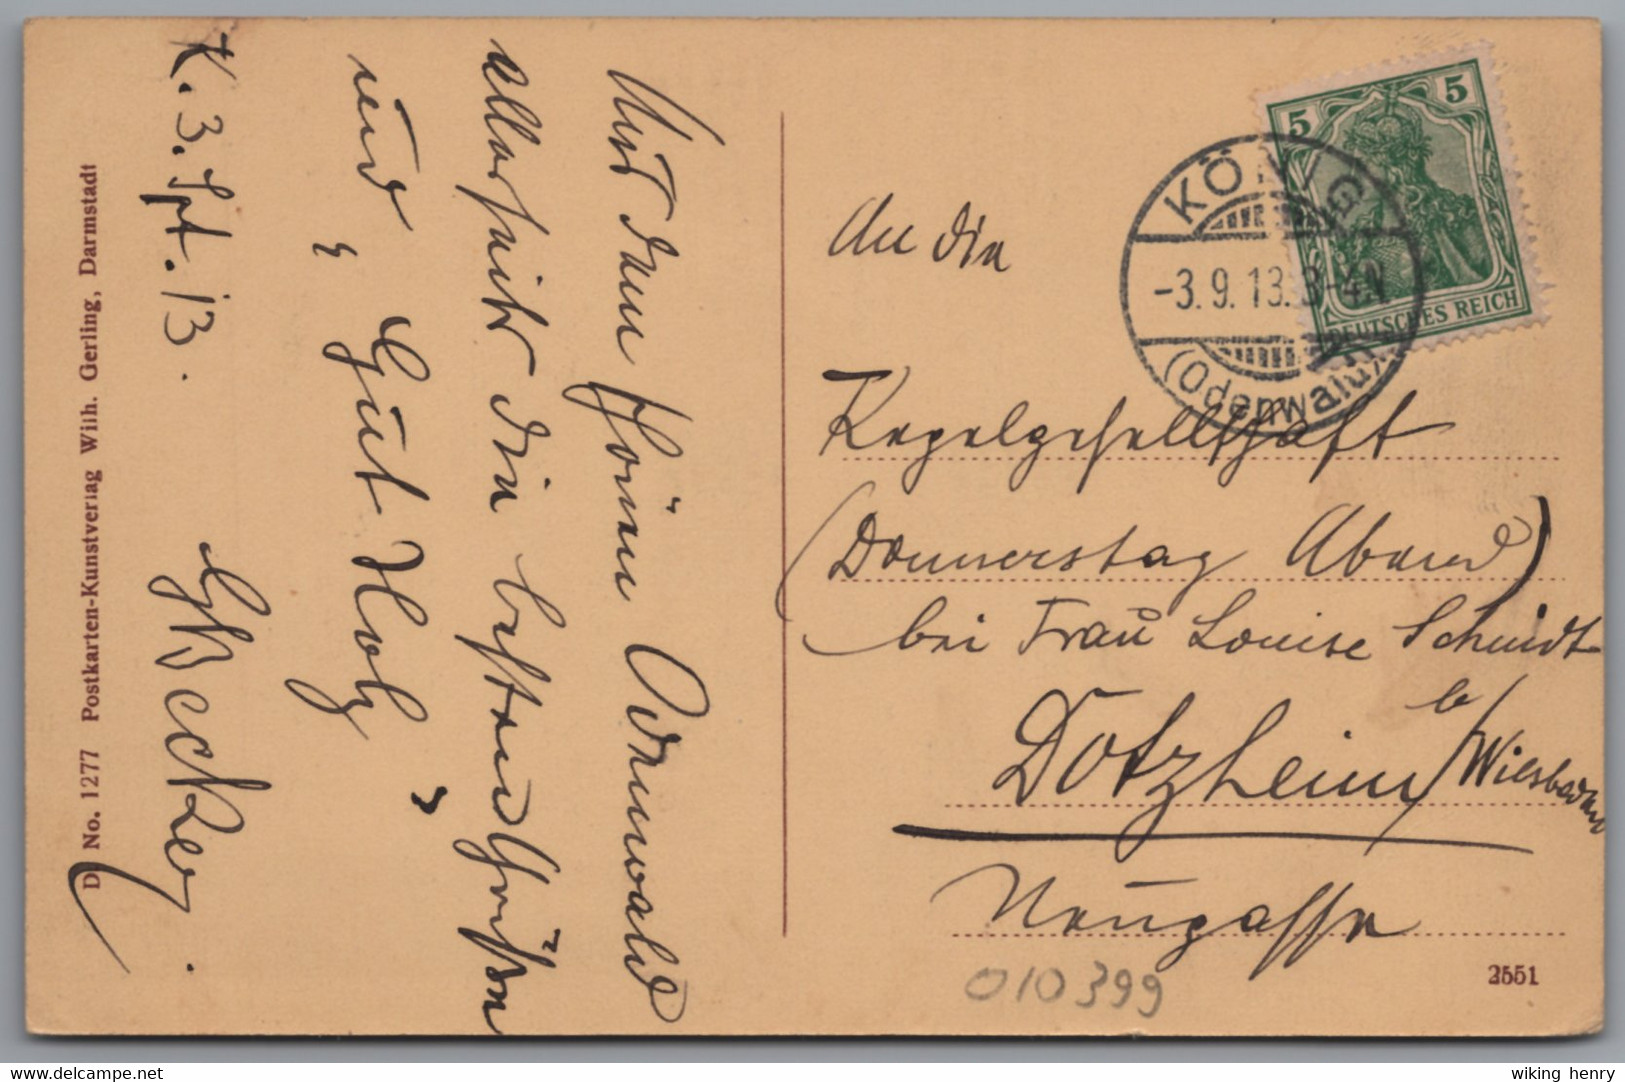 Aus dem schönen Odenwald
allerseits die besten Grüßen
und
„Gut Holz"
K. 3. Spt. 13.
D No. 1277 Postkarten-Kunstverlag Wilh. Gerling, Darmstadt
5 5
DEUTSCHES REICH
KÖNIG
-3.9.13. 3-4N
(Odenwald)
An die
Kegelgesellschaft
(Donnerstag Abend)
bei Frau Louise Schmidt
Dotzheim b/ Wiesbaden
Neugasse
010399
2551
www.delcampe.net
wiking henry